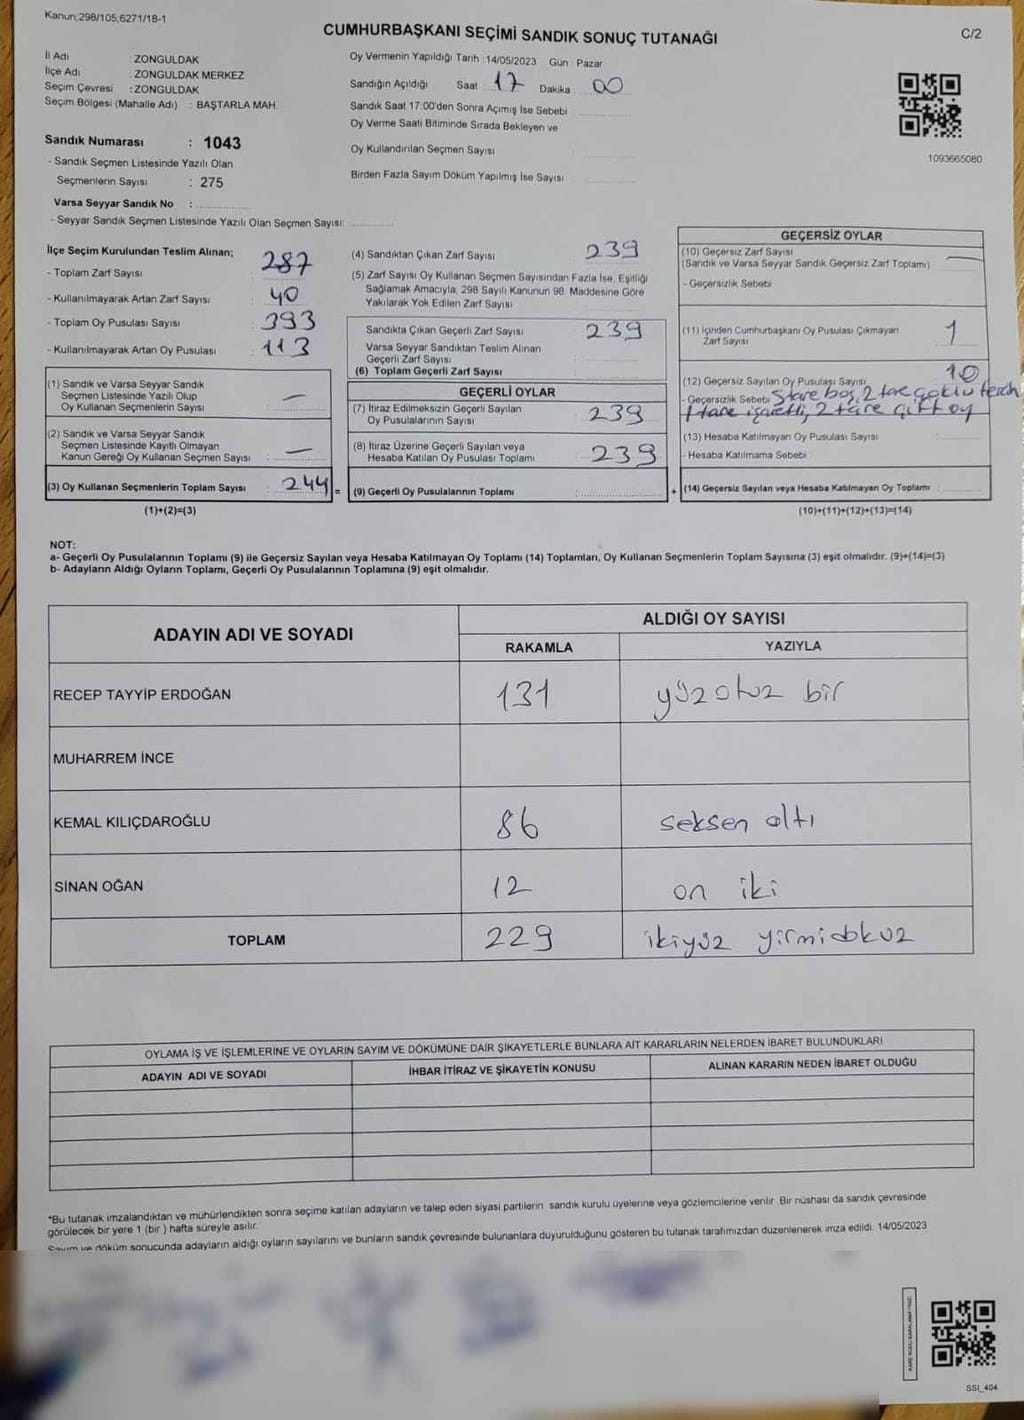 Kanun;298/105,6271/18-1
CUMHURBAŞKANI SEÇİMİ SANDIK SONUÇ TUTANAĞI
C/2
İl Adı : ZONGULDAK
İlçe Adı : ZONGULDAK MERKEZ
Seçim Çevresi : ZONGULDAK
Seçim Bölgesi (Mahalle Adı) : BAŞTARLA MAH.
Oy Vermenin Yapıldığı Tarih :14/05/2023 Gün : Pazar
Sandığın Açıldığı Saat 17 Dakika 00
Sandık Saat 17:00'den Sonra Açımış İse Sebebi
Oy Verme Saati Bitiminde Sırada Bekleyen ve
Oy Kullandırılan Seçmen Sayısı
Birden Fazla Sayım Döküm Yapılmış İse Sayısı
1093665080
Sandık Numarası : 1043
- Sandık Seçmen Listesinde Yazılı Olan
Seçmenlerin Sayısı : 275
Varsa Seyyar Sandık No :
- Seyyar Sandık Seçmen Listesinde Yazılı Olan Seçmen Sayısı:
İlçe Seçim Kurulundan Teslim Alınan;
- Toplam Zarf Sayısı : 287
- Kullanılmayarak Artan Zarf Sayısı : 40
- Toplam Oy Pusulası Sayısı : 393
- Kullanılmayarak Artan Oy Pusulası : 113
(1) Sandık ve Varsa Seyyar Sandık
Seçmen Listesinde Yazılı Olup
Oy Kullanan Seçmenlerin Sayısı : —
(2) Sandık ve Varsa Seyyar Sandık
Seçmen Listesinde Kayıtlı Olmayan
Kanun Gereği Oy Kullanan Seçmen Sayısı : —
(3) Oy Kullanan Seçmenlerin Toplam Sayısı : 244 =
(1)+(2)=(3)
(4) Sandıktan Çıkan Zarf Sayısı 239
(5) Zarf Sayısı Oy Kullanan Seçmen Sayısından Fazla İse, Eşitliği
Sağlamak Amacıyla; 298 Sayılı Kanunun 98. Maddesine Göre
Yakılarak Yok Edilen Zarf Sayısı
Sandıkta Çıkan Geçerli Zarf Sayısı 239
Varsa Seyyar Sandıktan Teslim Alınan
Geçerli Zarf Sayısı
(6) Toplam Geçerli Zarf Sayısı
GEÇERLİ OYLAR
(7) İtiraz Edilmeksizin Geçerli Sayılan
Oy Pusulalarının Sayısı 239
(8) İtiraz Üzerine Geçerli Sayılan veya
Hesaba Katılan Oy Pusulası Toplamı 239
(9) Geçerli Oy Pusulalarının Toplamı +
GEÇERSİZ OYLAR
(10) Geçersiz Zarf Sayısı —
(Sandık ve Varsa Seyyar Sandık Geçersiz Zarf Toplamı)
- Geçersizlik Sebebi
(11) İçinden Cumhurbaşkanı Oy Pusulası Çıkmayan
Zarf Sayısı 1
(12) Geçersiz Sayılan Oy Pusulası Sayısı 10
- Geçersizlik Sebebi 5 tane boş, 2 tane çoklu tercih
1 tane işaretli, 2 tane çift oy
(13) Hesaba Katılmayan Oy Pusulası Sayısı
- Hesaba Katılmama Sebebi
(14) Geçersiz Sayılan veya Hesaba Katılmayan Oy Toplamı :
(10)+(11)+(12)+(13)=(14)
NOT:
a- Geçerli Oy Pusulalarının Toplamı (9) ile Geçersiz Sayılan veya Hesaba Katılmayan Oy Toplamı (14) Toplamları, Oy Kullanan Seçmenlerin Toplam Sayısına (3) eşit olmalıdır. (9)+(14)=(3)
b- Adayların Aldığı Oyların Toplamı, Geçerli Oy Pusulalarının Toplamına (9) eşit olmalıdır.
ADAYIN ADI VE SOYADI
ALDIĞI OY SAYISI
RAKAMLA YAZIYLA
RECEP TAYYİP ERDOĞAN 131 yüzotuz bir
MUHARREM İNCE
KEMAL KILIÇDAROĞLU 86 seksen altı
SİNAN OĞAN 12 on iki
TOPLAM 229 ikiyüz yirmidokuz
OYLAMA İŞ VE İŞLEMLERİNE VE OYLARIN SAYIM VE DÖKÜMÜNE DAİR ŞİKAYETLERLE BUNLARA AİT KARARLARIN NELERDEN İBARET BULUNDUKLARI
ADAYIN ADI VE SOYADI İHBAR İTİRAZ VE ŞİKAYETİN KONUSU ALINAN KARARIN NEDEN İBARET OLDUĞU
*Bu tutanak imzalandıktan ve mühürlendikten sonra seçime katılan adayların ve talep eden siyasi partilerin sandık kurulu üyelerine veya gözlemcilerine verilir. Bir nüshası da sandık çevresinde
görülecek bir yere 1 (bir ) hafta süreyle asılır.
Sayım ve döküm sonucunda adayların aldığı oyların sayılarını ve bunların sandık çevresinde bulunanlara duyurulduğunu gösteren bu tutanak tarafımızdan düzenlenerek imza edildi. 14/05/2023
SSI_404